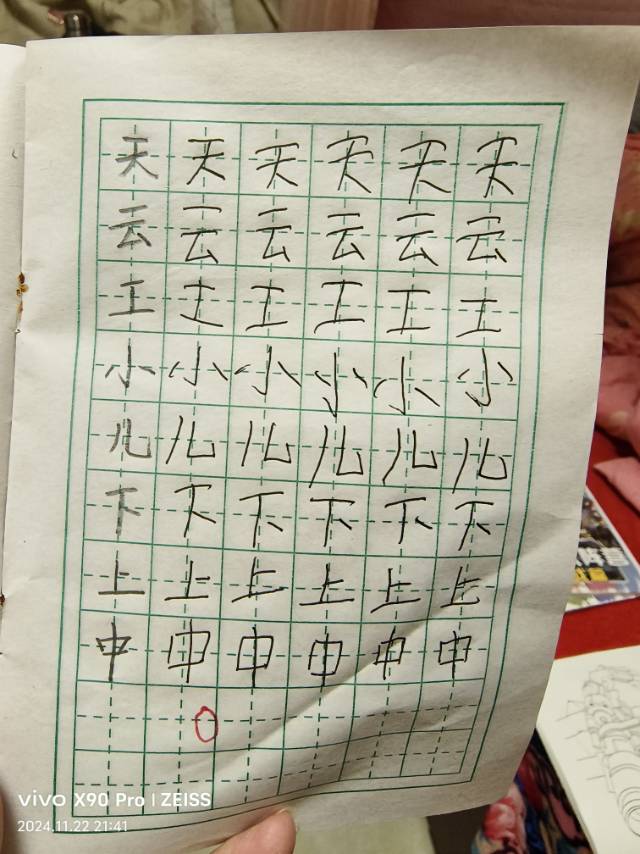 天天天天天天
云云云云云云
工工工工工工
小小小小小小
儿儿儿儿儿儿
下下下下下下
上上上上上上
中中中中中中
vivo X90 Pro | ZEISS
2024.11.22 21:41